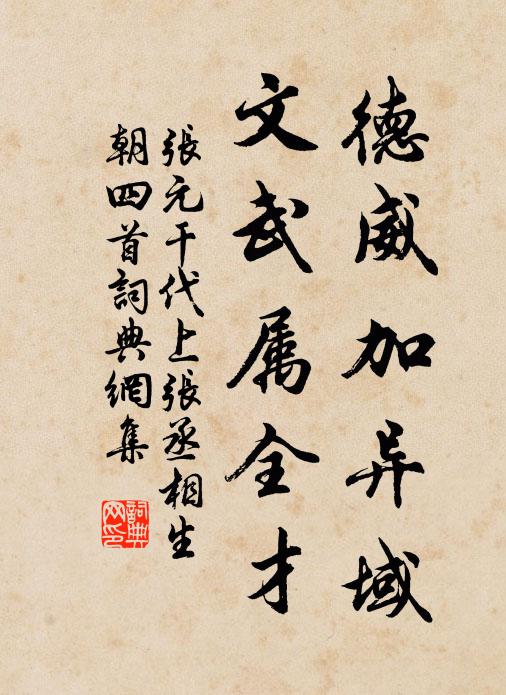 德威加异域
文武属全才
張元干代上張丞相生
朝四首詞典網集
詞典
网印